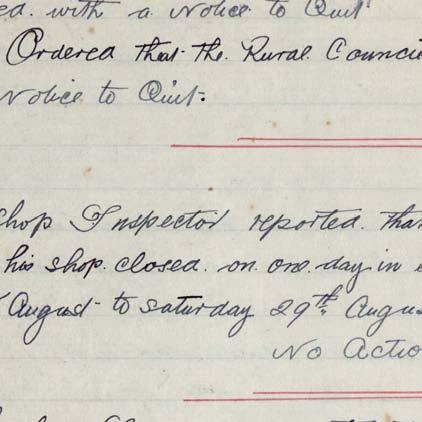 with a Notice to Quit
Ordered that the Rural
Notice to Quit.
Shop Inspector reported that
his shop closed on one day in
August to Saturday 29th
No